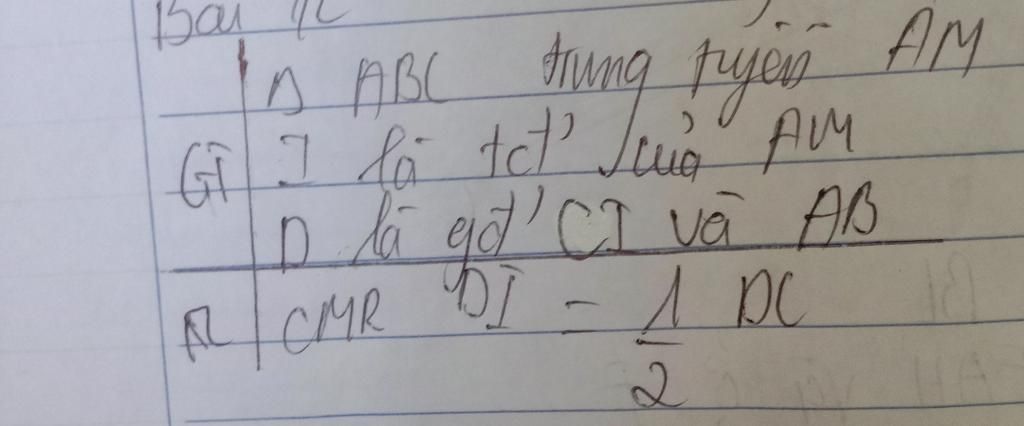 Bài
Δ ABC trung tuyến AM
GT I là tđ' của AM
D là gđ' CI và AB
KL CMR DI = 1/2 DC